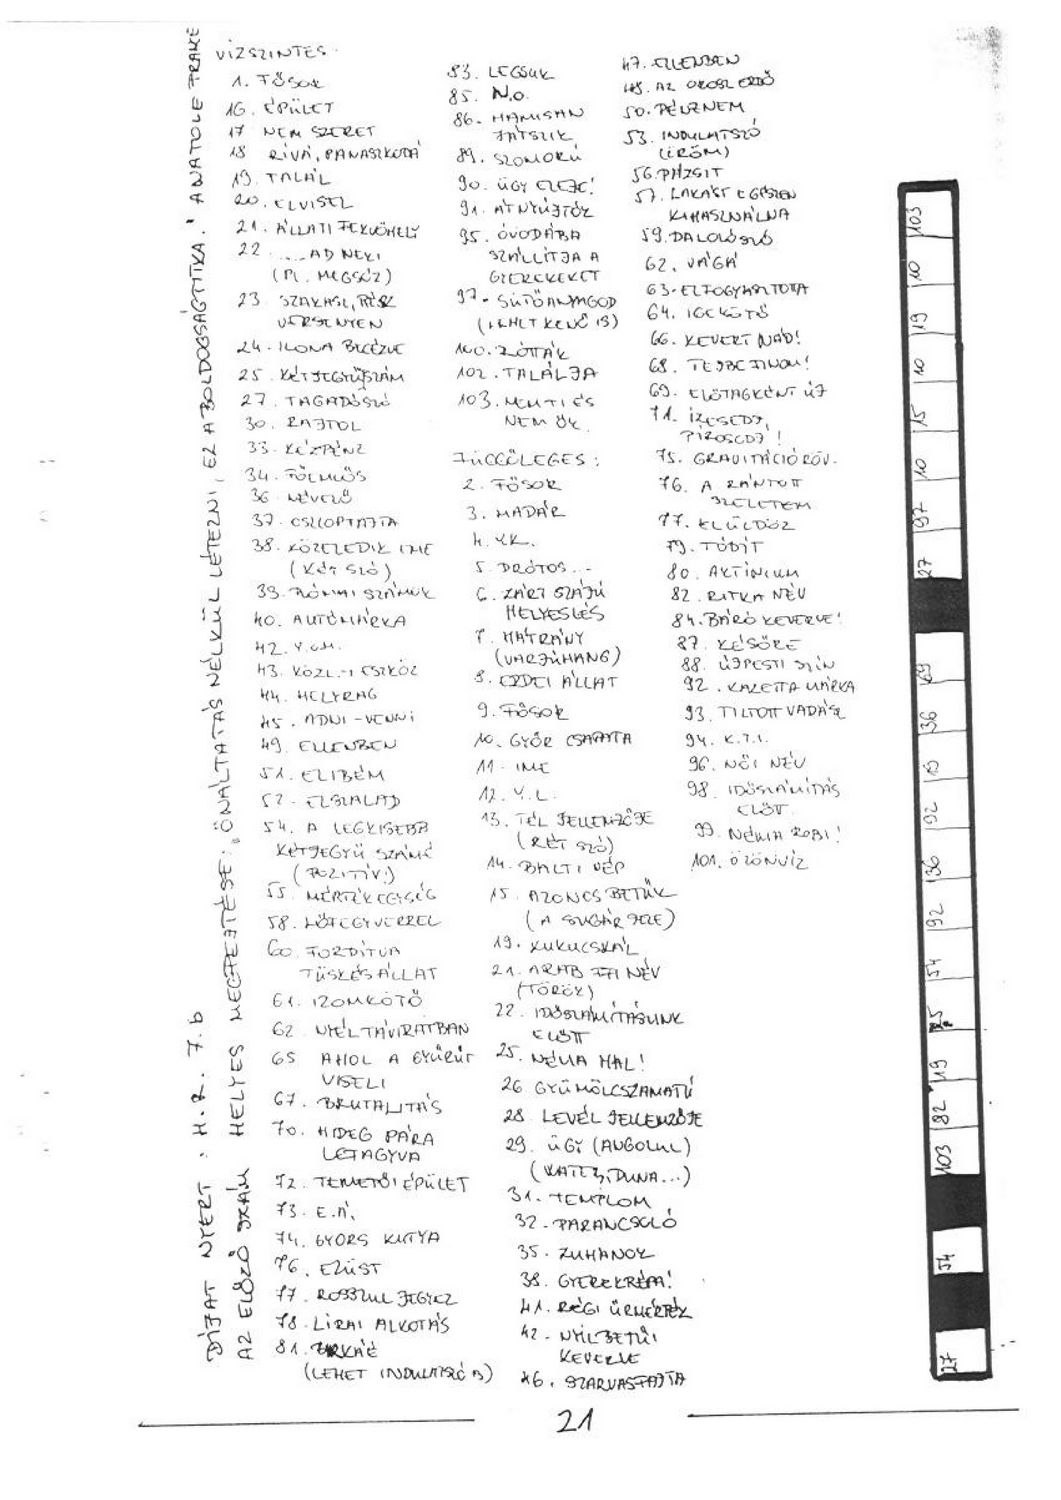 VÍZSZINTES.
1. FŐSOR
16. ÉPÜLET
17 NEM SZERET
18 RÍVÁ, PANASZKODÁ
19. TALÁL
20. ELVISEL
21. ÁLLATI FEKVŐHELY
22. .....AD NEKI
(PL. MEGSÚZ)
23 SZAKASZ, RÉSZ
VERSENYEN
24. ILONA BECÉZVE
25. KÉTJEGYŰ SZÁM
27. TAGADÓSZÓ
30. RAJTOL
33. KÉZPÉNZ
34. FÖLMŰS
36. NÉVELŐ
37. CSIPOPTATTA
38. KÖZELEDIK IME
(KÉT SZÓ)
39. RÓMAI SZÁMOK
40. AUTÓMÁRKA
42. Y.O.M.
43. KÖZL.-I ESZKÖZ
44. HELYRAG
45. ADNI-VENNI
49. ELLENBEN
51. ELIBÉM
52. ELSZALAD
54. A LEGKISEBB
KÉTJEGYŰ SZÁMÉ
(POZITÍV.)
55. MÉRTÉKEGYSÉG
58. LŐFEGYVERREL
60. FORDÍTVA
TÜSKÉS ÁLLAT
61. IZOMKÖTŐ
62 NYÉLTÁVIRATBAN
65 AHOL A GYŰRŰT
VISELI
67. BRUTALITÁS
70. HIDEG PÁRA
LEFAGYVA
72. TEMETŐI ÉPÜLET
73. E.Á.
74. GYORS KUTYA
76. EZÜST
77. ROSSZUL JEGYEZ
78. LÍRAI ALKOTÁS
81.
(LEHET INDULATSZÓ IS)
83. LEGSUK
85. N.O.
86. HAMISAN
JÁTSZIK
89. SZOMORÚ
90. ÜGY ELEJE!
91. ÁTNYÚJTÓK
95. ÓVODÁBA
SZÁLLÍTJA A
GYEREKEKET
97. SÜTŐANYAGOD
(LEHET KENŐ IS)
100. ZÓTTÁK
102. TALÁLJA
103. NEM TI ÉS
NEM ŐK.
FÜGGŐLEGES:
2. FŐSOR
3. MADÁR
4. YK.
5. DRÓTOS...
6. ZÁRT SZÁJÚ
HELYESLÉS
7. HÁTRÁNY
(VARJÚHANG)
8. ERDEI ÁLLAT
9. FŐSOR
10. GYŐR CSAPATA
11. IME
12. Y.L.
13. TÉL JELLEMZŐJE
(KÉT SZÓ)
14. BALTI NÉP
15. AZONOS BETŰK
(A SUGÁR JELE)
19. KUKUCSKÁL
21. ARAB FFI NÉV
(TÖRÖK)
22. IDŐSZÁMÍTÁSUNK
ELŐTT
25. NÉMA HAL!
26 GYÜMÖLCSZAMATÚ
28. LEVÉL JELLEMZŐJE
29. ÜGY (ANGOLUL)
(KATEZI, DUNA...)
31. TEMPLOM
32. PARANCSOLÓ
35. ZUHANOK
38. GYEREKRÉM!
41. RÉGI ŰRMÉRTÉK
42. NYÍLBETŰI
KEVERVE
46. SZARVASFAJTA
47. ELLENBEN
48. AZ OROSZ ERDŐ
50. PÉNZNEM
53. INDULATSZÓ
(ÖRÖM)
56. PÁZSIT
57. LAKÁST EGÉSZEN
KIHASZNÁLNA
59. DALOLÓSZÓ
62. VÁGÁ
63. ELFOGYASZTOTTA
64. IGEKÖTŐ
66. KEVERT NÁD!
68. TEJBE FINOM!
69. ELŐTAGKÉNT ÚJ
71. ÍZESEDJ,
PIROSODJ!
75. GRAVITÁCIÓ RÖV.
76. A RÁNTOTT
SZELETEM
77. ELÜLDÖZ
79. TÓDÍT
80. AKTÍNIUM
82. RITKA NÉV
84. BÁRÓ KEVERVE!
87. KÉSŐRE
88. ÚJPESTI SZÍN
92. KAZETTA MÁRKA
93. TILTOTT VADÁSZ
94. K.T.I.
96. NŐI NÉV
98. IDŐSZÁMÍTÁS
ELŐTT.
99. NÉMA ROBI!
101. ÖZÖNVÍZ
DÍJAT NYERT: H.R. 7.b
AZ ELŐZŐ SZÁM HELYES MEGFEJTÉSE: „ÖNÁLTATÁS NÉLKÜL LÉTEZNI, EZ A BOLDOGSÁG TITKA." ANATOLE FRANCE
103
10
19
10
15
10
97
27
69
36
15
92
36
92
54
25
49
82
103
54
27
21